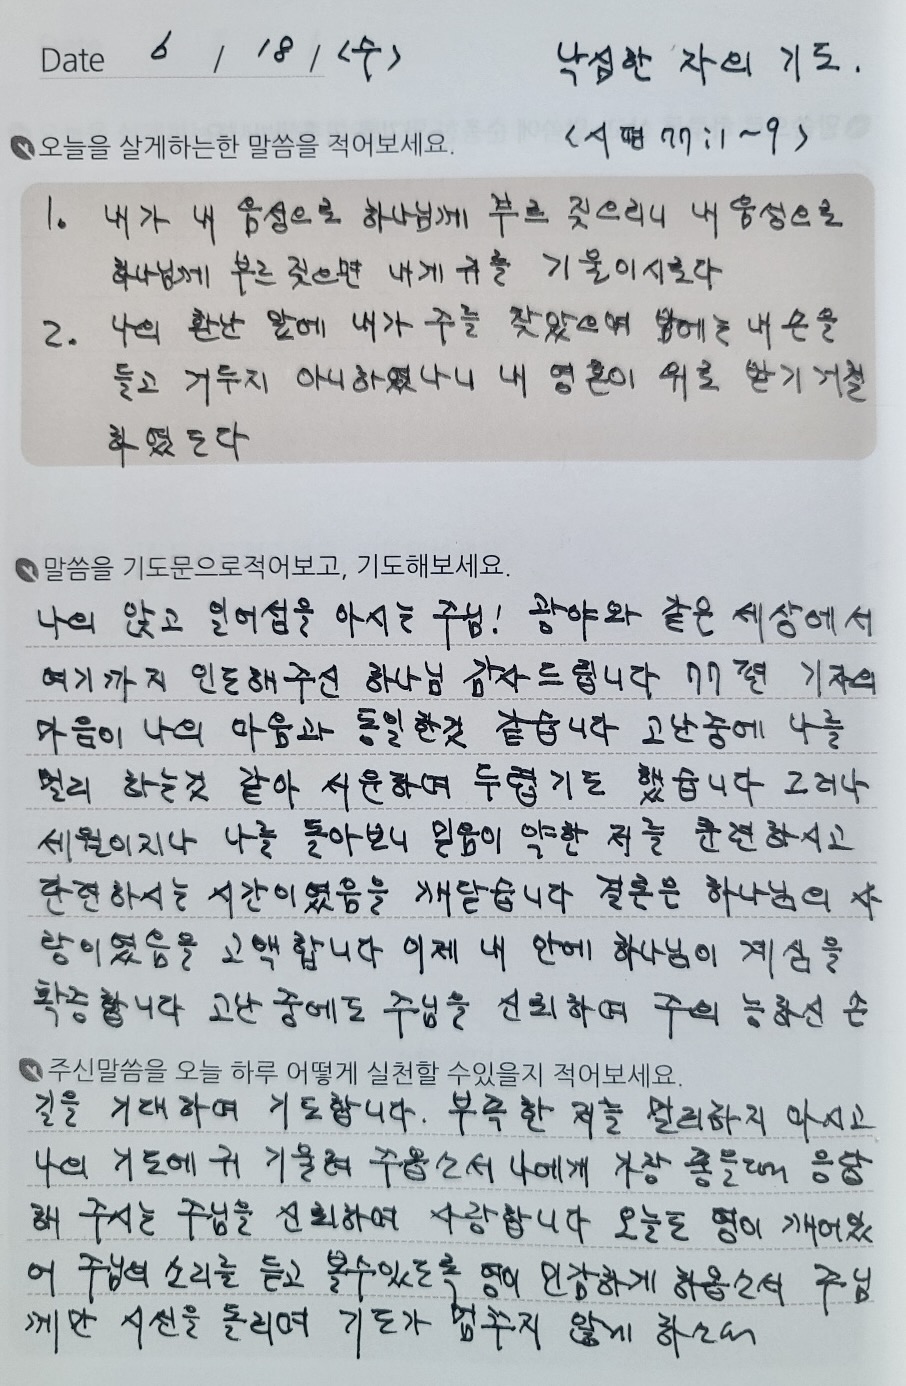 Date 6 / 18 / <수> 낙심한 자의 기도.
오늘을 살게하는한 말씀을 적어보세요. <시편 77:1~9>
1. 내가 내 음성으로 하나님께 부르 짖으리니 내 음성으로
하나님께 부르 짖으면 내게 귀를 기울이시로다
2. 나의 환난 날에 내가 주를 찾았으며 밤에는 내 손을
들고 거두지 아니하였나니 내 영혼이 위로 받기 거절
하였도다
말씀을 기도문으로적어보고, 기도해보세요.
나의 앉고 일어섬을 아시는 주님! 광야와 같은 세상에서
여기까지 인도해주신 하나님 감사드립니다 77편 기자의
마음이 나의 마음과 동일한것 같습니다 고난중에 나를
멀리 하는것 같아 서운하며 두렵기도 했습니다 그러나
세월이지나 나를 돌아보니 믿음이 약한 저를 훈련하시고
단련하시는 시간이였음을 깨닫습니다 결론은 하나님의 사
랑이였음을 고백합니다 이제 내 안에 하나님이 계심을
확증합니다 고난 중에도 주님을 신뢰하며 주의 능하신 손
주신말씀을 오늘 하루 어떻게 실천할 수있을지 적어보세요.
길을 기대하며 기도합니다. 부족한 저를 멀리하지 마시고
나의 기도에 귀 기울려 주옵소서 나에게 가장 좋을때에 응답
해 주시는 주님을 신뢰하며 사랑합니다 오늘도 영이 깨어있
어 주님의 소리를 듣고 볼수있도록 영이 민감하게 하옵소서 주님
께만 시선을 돌리며 기도가 멈추지 않게 하소서